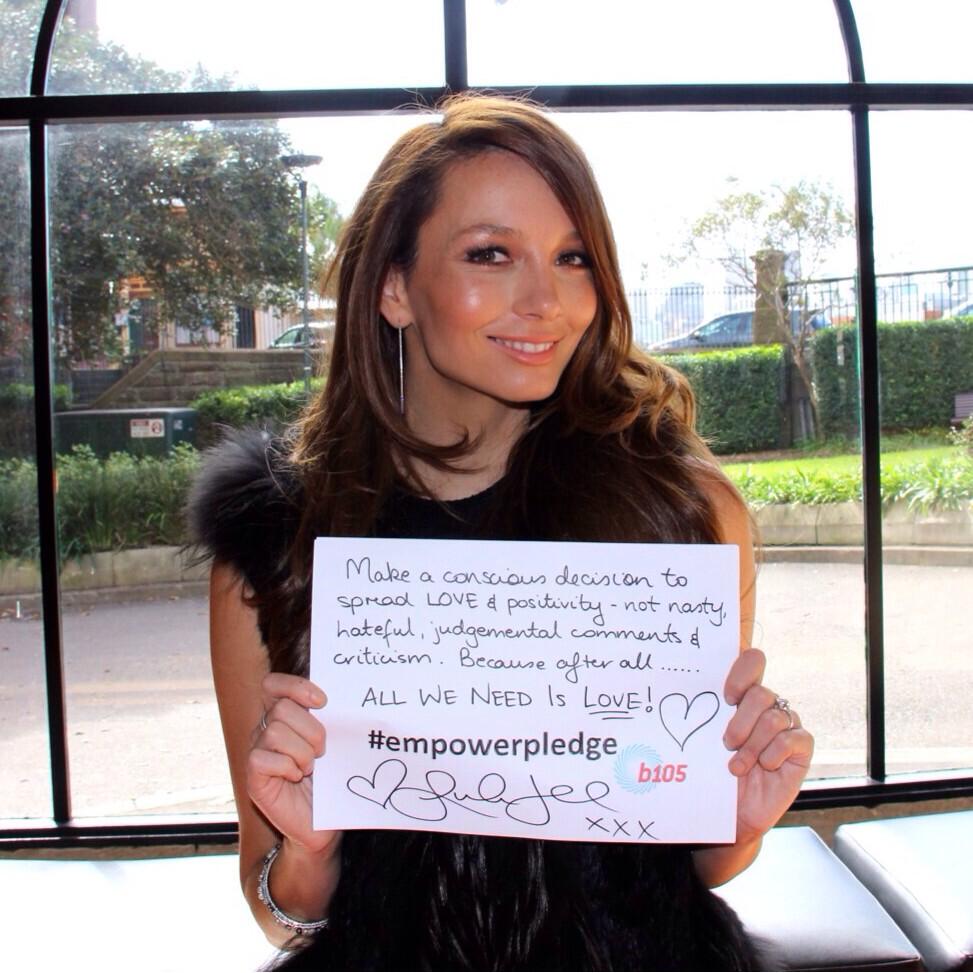 Make a conscious decision to
spread LOVE & positivity - not nasty,
hateful, judgemental comments &
criticism. Because after all ......
ALL WE NEED IS LOVE!
#empowerpledge
b105
xxx